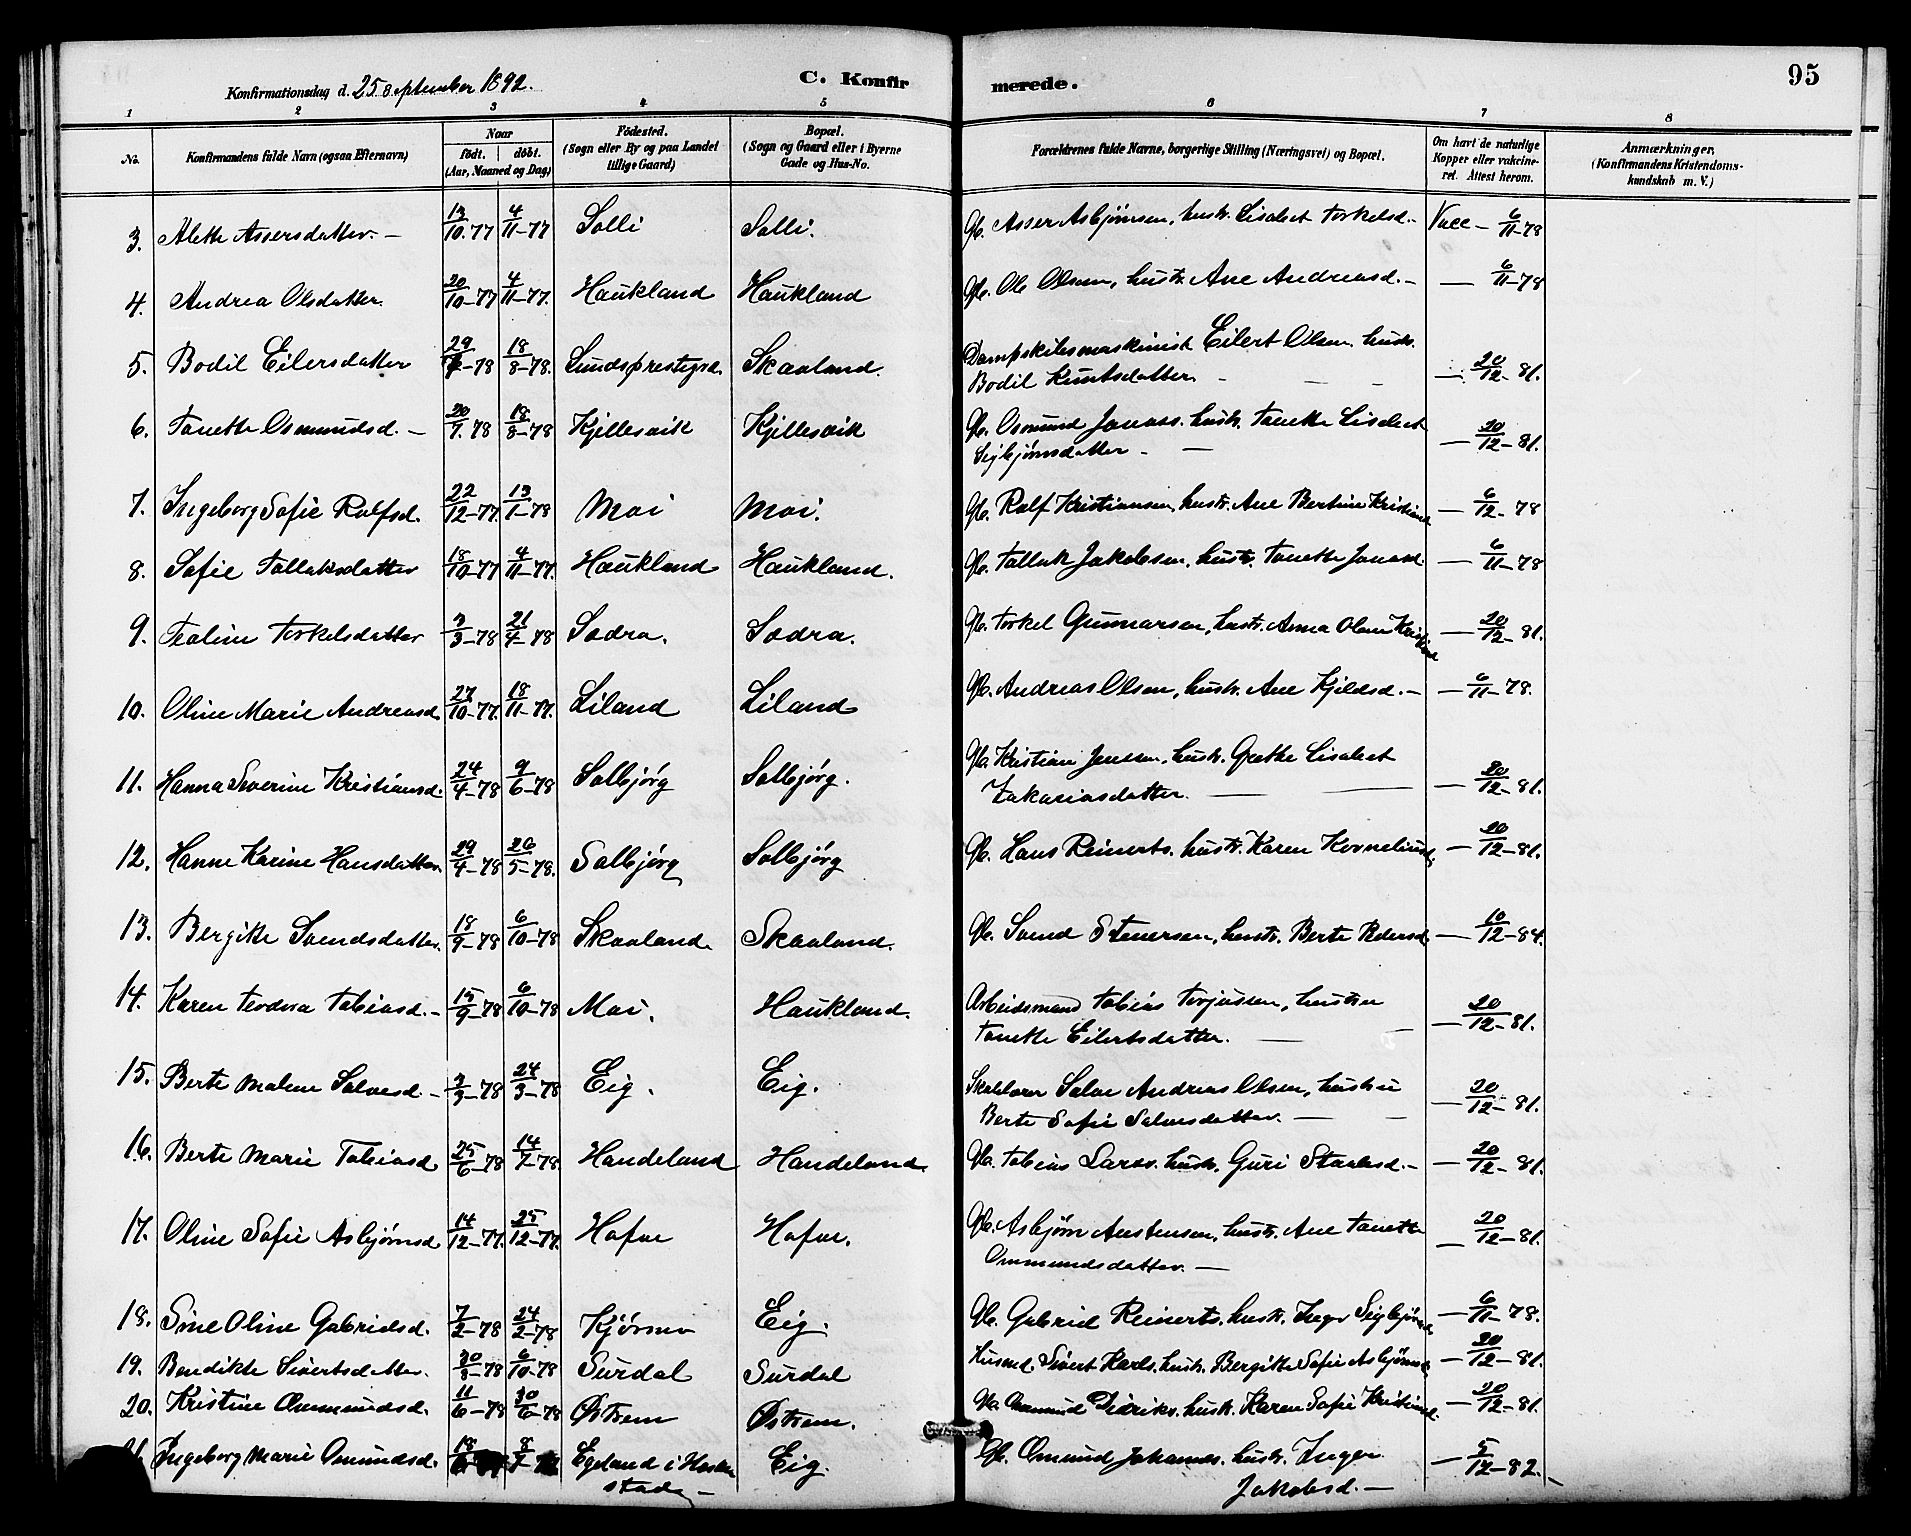 95
Konfirmationsdag d. 25 September 1892.
C. Konfirmerede.
1 2 3 4 5 6 7 8
No. Konfirmandens fulde Navn (ogsaa Efternavn) Naar født. døbt. (Aar, Maaned og Dag) Fødested. (Sogn eller By og paa Landet tillige Gaard) Bopæl. (Sogn og Gaard eller i Byerne Gade og Hus-No. Forældrenes fulde Navne, borgerlige Stilling (Næringsvei) og Bopæl. Om havt de naturlige Kopper eller vakcineret. Attest herom. Anmærkninger, (Konfirmandens Kristendomskundskab m. V.)
3. Alette Assersdatter. – 13/10-77 4/11-77 Solli Solli. Gb. Asser Asbjørnsen, hustr. Lisabet Torkelsd. – Vacc – 6/11-78
4. Andrea Olsdatter. 20/10-77 4/11-77. Haukland Haukland Gb. Ole Olsen, hustr. Ane Andreasd. – — 6/11-78
5. Bodil Eilersdatter 29/-78 18/8-78. Lunds prestegd. Skaaland. Dampskibsmaskinist Eilert Olsen hustr.
Bodil Kuntsdatter. – – – — 20/12-81.
6. Tanette Osmundsd. – 20/7.78 18/8-78 Kjellesvik Kjellesvik Gb. Osmund Jonass. hustr. Tanette Lisabet
Sigbjørnsdatter – — — 20/12-81.
7. Ingeborg Sofie Rolfsd. 22/12-77. 13/1-78 Moi Moi. Gb. Rolf Kristiansen, hustr. Ane Bertine Kristiansd — 6/12-78
8. Sofie Tollaksdatter 18/10-77 4/11-77. Haukland Haukland. Gb. Tollak Jakobsen, hustr. Tanette Jonasd. — 6/11-78
9. Tealine Torkelsdatter 3/3-78 21/4-78 Sodra. Sodra. Gb. Torkel Gunnarsen, hustr. Anna Olene Kristiansd — 20/12-81.
10. Oline Marie Andreasd. 27/10-77. 18/11-77. Liland Liland Gb. Andreas Olsen, hustr. Ane Kjeldsd. – — 6/11-78.
11. Hanna Severine Kristiansd. 24/4-78 9/6-78 Solbjørg Solbjørg. Gb. Kristian Jensen, hustr. Grethe Lisabet
Zakariasdatter. — — — 20/12-81.
12. Hanne Karine Hansdatter. 29/4-78 26/5-78. Solbjørg Solbjørg Gb. Hans Reinerts. hustr. Karen Korneliusd. — 20/12-81.
13. Bergitte Svendsdatter. 18/9-78 6/10-78 Skaaland. Skaaland. Gb. Svend Stenersen, hustr. Berte Pedersd — 10/12-84.
14. Karen Teodora Tobiasd. – 15/9-78 6/10-78 Moi. Haukland. Arbeidsmand Tobias Terjussen, hustru
Tanette Eilertsdatter. — – — 20/12-81.
15. Berte Malene Salvesd. – 3/3-78 24/3-78 Eig. Eig. Skollærer Salve Andreas Olsen, hustru
Berte Sofie Salvesdatter. — – — 20/12-81.
16. Berte Marie Tobiasd 25/6-78 14/7-78. Handeland Handeland Gb. Tobias Larss. hustr. Guri Staalesd. – — 20/12-81.
17. Oline Sofie Asbjørnsd 14/12-77. 25/12-77. Hafsø Hafsø. Gb. Asbjørn Austensen, hustr. Ane Tanette
Ommundsdatter. — — 20/12-81.
18. Sine Oline Gabrielsd. 7/2-78 24/2-78 Kjørmo Eig. Gb. Gabriel Reinerts. hustr. Inger Sigbjørnsd — 6/11-78.
19. Bendikte Sivertsdatter. 30/8-78 6/10-78 Surdal Surdal Husmd. Sivert Karls. hustr. Bergitte Sofie Asbjørnsd — 20/12-81.
20. Kristine Ommundsd. 11/6-78 30/6-78 Østrem Østrem. Gb. Ommund Didriks. hustr. Karen Sofie Kristiansd. — 20/12-81.
Ingeborg Marie Omundsd. 18/ 8/7 Egeland i Heske-
stad – Eig. Gb. Omund Johannes. hustr. Inger
Jakobsd. – — 5/12-82. –